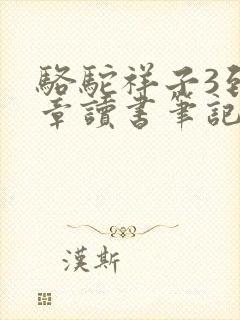 駱駝祥子3到
章讀書筆記
漢斯